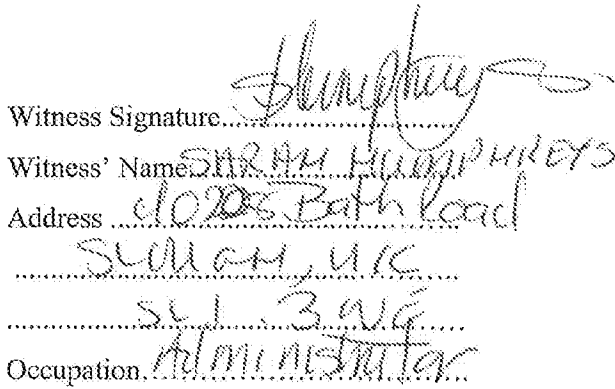 Witness Signature SHumphreys
Witness' Name SARAH HUMPHREYS
Address Bath Road
SLOUGH, UK
SL1 3WE
Occupation Administrator